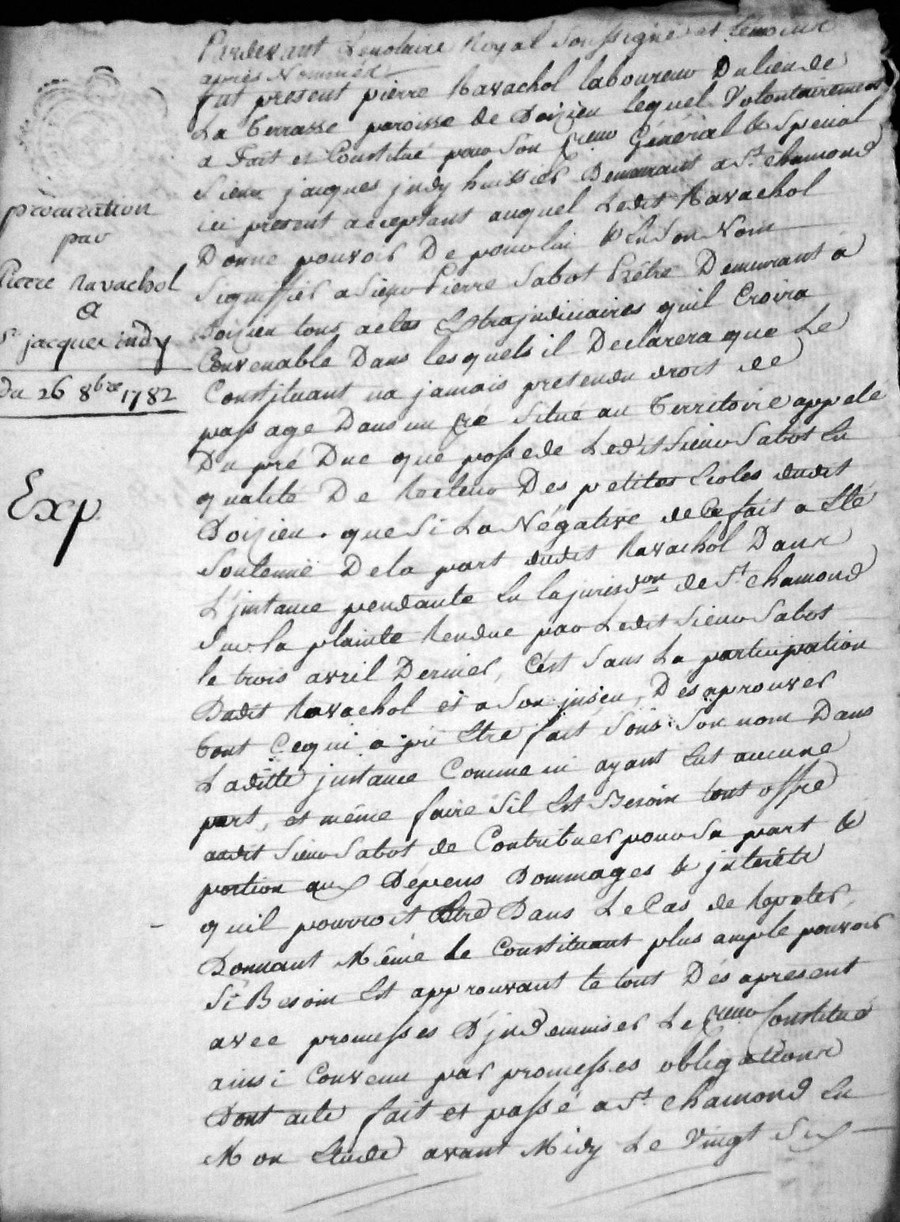 procuration
par
Pierre Ravachol
a
Sr jacques jndy
Du 26 8bre 1782
Exp
Pardevant Le notaire Royal soussigné et témoins
après Nommés
fut present pierre Ravachol laboureur Du lieu de
La terrasse paroisse de Doizieu lequel Volontairement
a fait et Constitué pour son preur Général & Special
Sieur jacques jndy huissier Demeurant a St chamond
ici present acceptant auquel Ledit Ravachol
Donne pouvoir De pour lui & En Son Nom
Signiffier a Sieur Pierre Sabot Prêtre Demeurant à
Doizieu tous actes Extrajudiciaires quil Croira
Convenable Dans lesquels il Declarera que Le
Constituant na jamais pretendu droit de
passage Dans un pré Situé au territoire appelé
Du pré Duc que possede Ledit Sieur Sabot En
qualité De Recteur Des petites Ecoles dudit
Doizieu. que Si La Négative de Ce fait a Eté
Soutenue De la part dudit Ravachol Dans
L'jnstance pendante En la jurison de St chamond
Sur la plainte Rendue par Ledit Sieur Sabot
le trois avril Dernier, C'est Sans La participation
Dudit Ravachol et a Son jnseu, Desaprouver
tout Cequi a pû Etre fait Sous Son nom Dans
Laditte jnstance Comme ni ayant Eut aucune
part, et même faire Sil Est Besoin tout offre
audit Sieur Sabot de Contribuer pour Sa part &
portion aux Dépens Dommages & jnterêts
quil pourroit Etre Dans Le Cas de Repeter,
Donnant Même Le Constituant plus ample pouvoir
Si Besoin Est approuvant le tout Dés apresent
avec promesses D'jndemniser Le preur Constitué
ainsi Convenu par promesses obligations
Dont acte fait et passé a St chamond En
Mon Etude avant Midy Le Vingt Six